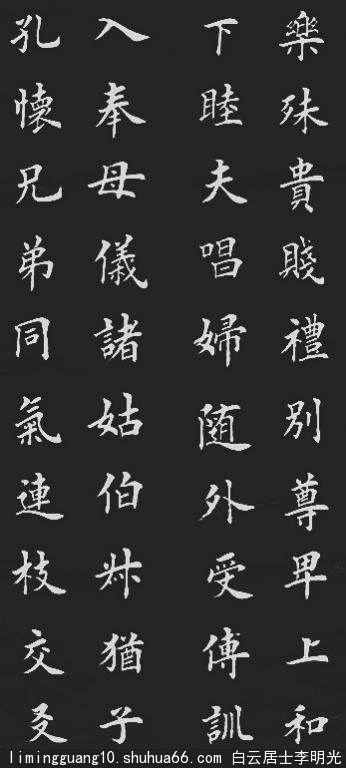 樂殊貴賤禮別尊卑上和
下睦夫唱婦随外受傅訓
入奉母儀諸姑伯叔猶子
孔懷兄弟同氣連枝交友
limingguang10.shuhua66.com 白云居士李明光